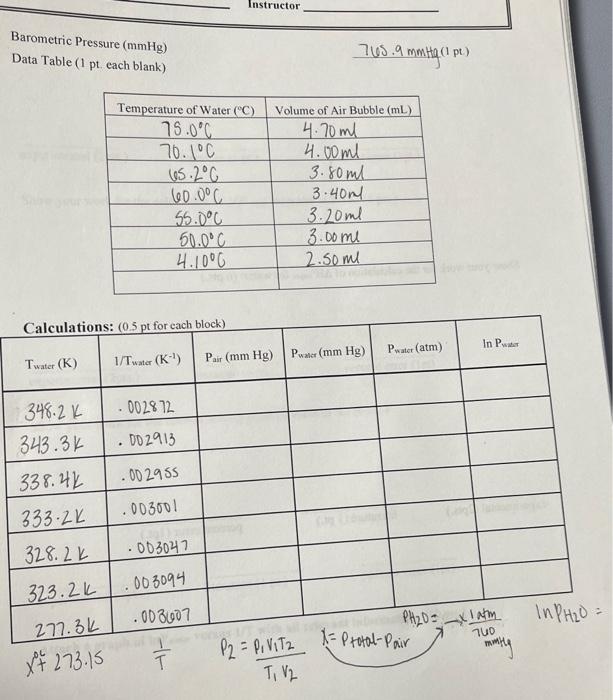 Instructor
Barometric Pressure (mmHg) 765.9 mmHg (1 pt.)
Data Table (1 pt. each blank)
Temperature of Water (°C) Volume of Air Bubble (mL)
75.0°C 4.70 ml
70.1°C 4.00 ml
65.2°C 3.80 ml
60.0°C 3.40 ml
55.0°C 3.20 ml
50.0°C 3.00 ml
4.10°C 2.50 ml
Calculations: (0.5 pt for each block)
Twater (K) 1/Twater (K-1) Pair (mm Hg) Pwater (mm Hg) Pwater (atm) ln Pwater
348.2 K .002872
343.3K .002913
338.4K .002955
333.2K .003001
328.2 K .003047
323.2K .003094
277.3K .003607
x°C + 273.15 1/T P2 = P1V1T2 / T1 V2 X = Ptotal - Pair PH2O = _x 1 atm / 760 mmHg ln PH2O =